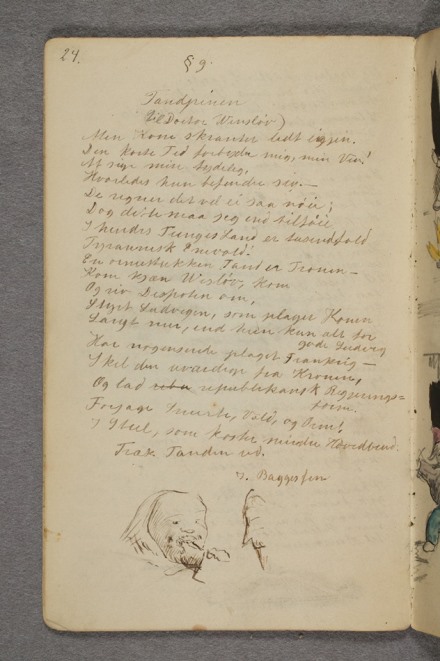 24.
§ 9.
Tandpinen
(til Doctor Winsløv)
Men Kone skranter lidt igjen.
Den korte Tid forbyder mig, min Ven!
At sige min tydelig,
Hvorledes hun befinder sig. —
De regner det vel ei saa nøie;
Dog dette maa jeg end tilføie
I hendes Tunges Land er tusindfold
Tyrannisk Enevold.
En Tand er Tronen —
Kom kjæn Wisløv, kom
Og riv Despoten om,
Styrt Ludvigen, som plager Konen
Langt mer, end hiin kan alt for
gode Ludvig
Har nogensinde plaget Frankrig —
Skil den fra Kronen,
Og lad republikansk Regjerings=
form.
Forjage Smerte, Vold, og Orm!
I Steel, som koster mindre Hovedbrud.
Træk Tanden ud.
J. Baggesen